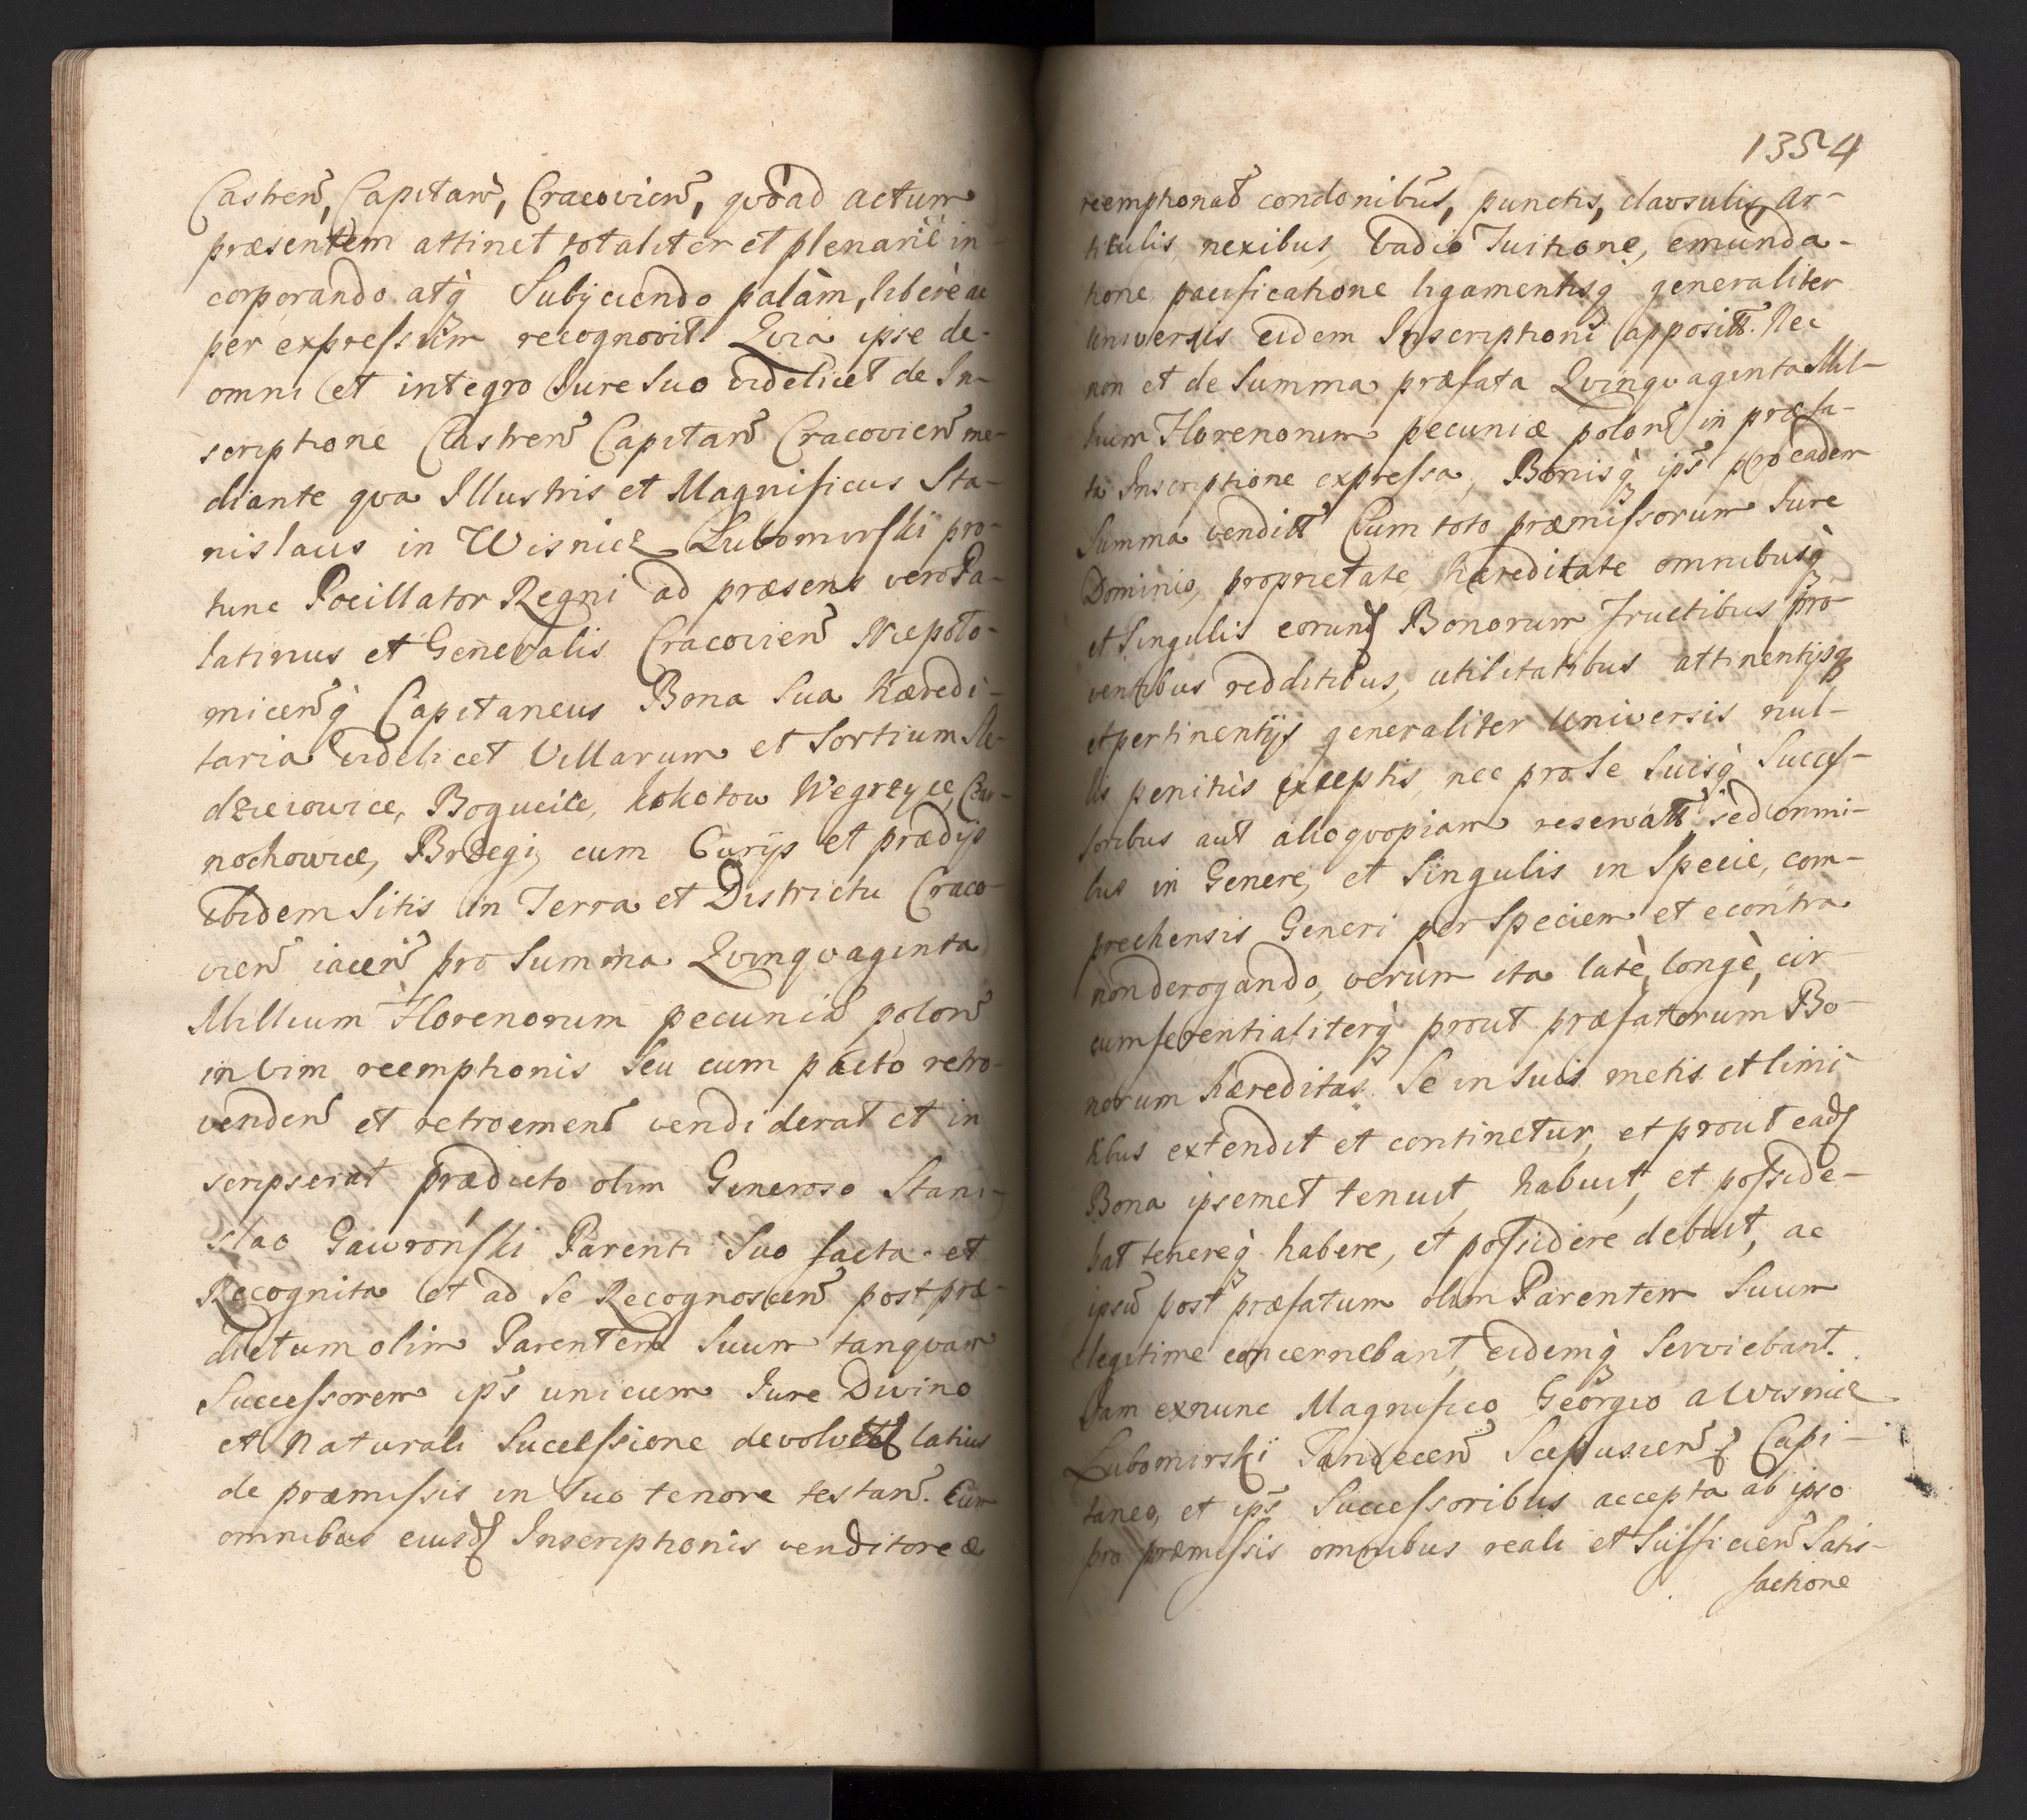 Castren̄, Capitan̄, Cracovien̄, quòad actum
præsentem attinet totaliter et plenariè in-
corporando atq̀ Subÿciendo palàm, liberè ac
per expressum recognovit. Qvia ipse de-
omni et integro Jure Suo videlicet de In-
scriptione Castren̄ Capitan̄ Cracovien̄ me-
diante qva Illustris et Magnificus Sta-
nislaus in Wisnicz Lubomirski pro-
tunc Pocillator Regni ad præsens vero Pa-
latinus et Generalis Cracovien̄ Niepoło-
micen̄q̀ Capitaneus Bona Sua hæredi-
taria videlicet Villarum et Sortium Sle-
dzieiowice, Bogucice, kokotow Węgrzyce, Czar-
nochowice, Brzegi, cum Curÿs et prædÿs
ibidem Sitis in Terra et Districtu Craco-
vien̄ iacen̄ pro Summa Qvinqvaginta
Millium Florenorum pecuniæ polon̄
in vim reemptionis Seu cum pacto retro-
venden̄ et retroemen̄ vendiderat et in
scripserat prædicto olim Generoso Stani-
slao Gawronski Parenti Suo facta et
Recognita et ad Se Recognoscen̄ post præ-
dictum olim Parentem Suum tanqvam
Successorem ips̄ unicum Jure Divino
et Naturali Successione devolut latius
de præmissis in Suo tenore testan̄. Cum
omnibus eiusd Inscriptionis venditoreæ
1354
reemptionat̄ condonibus̄, punctis, clavsulis, ar-
ticulis, nexibus, Vadio Tuitione, emunda-
tione, pacificatione ligamentisq̀ generaliter
Universis eidem Inscriptioni apposit̄t. Nec
non et de Summa præfata Qvinqvaginta Mil-
lium Florenorum pecuniæ polon̄ in præfa-
ta Inscriptione expressa, Bonisq̀ ips̄ pro eadem
Summa vendit̄t Cum toto præmissorum Jure
Dominio, proprietate, hæreditate omnibusq̀
et Singulis eorund Bonorum fructibus pro-
ventibus redditibus, utilitatibus attinentÿsq̀
et pertinentÿs generaliter Universis nul-
lis penitùs exceptis, nec pro Se Suisq̀ Succes-
soribus aut alio qvopiam reservat̄t sed omni-
bus in Genere, et Singulis in Specie, com-
prehensis Generi per Speciem et econtra
non derogando, verùm ita latè, longè, cir-
cumferentialiterq̀ prout præfatorum Bo-
norum hæreditas Se in Suis metis et limi-
tibus extendit et continetur, et prout ead
Bona ipsemet tenuit, habuit, et posside-
bat tenereq̀ habere, et possidere debuit, ac
ipsū post præfatum olim Parentem Suum
legitime concernebant, eidemq̀ Serviebant.
Jam exnunc Magnifico Georgio a Wisnicz
Lubomirski Sandecen̄ Scepusien̄q Capi-
taneo, et ips̄ Successoribus accepta ab ipso
pro præmissis omnibus reali et Sufficien̄ Satis-
factione